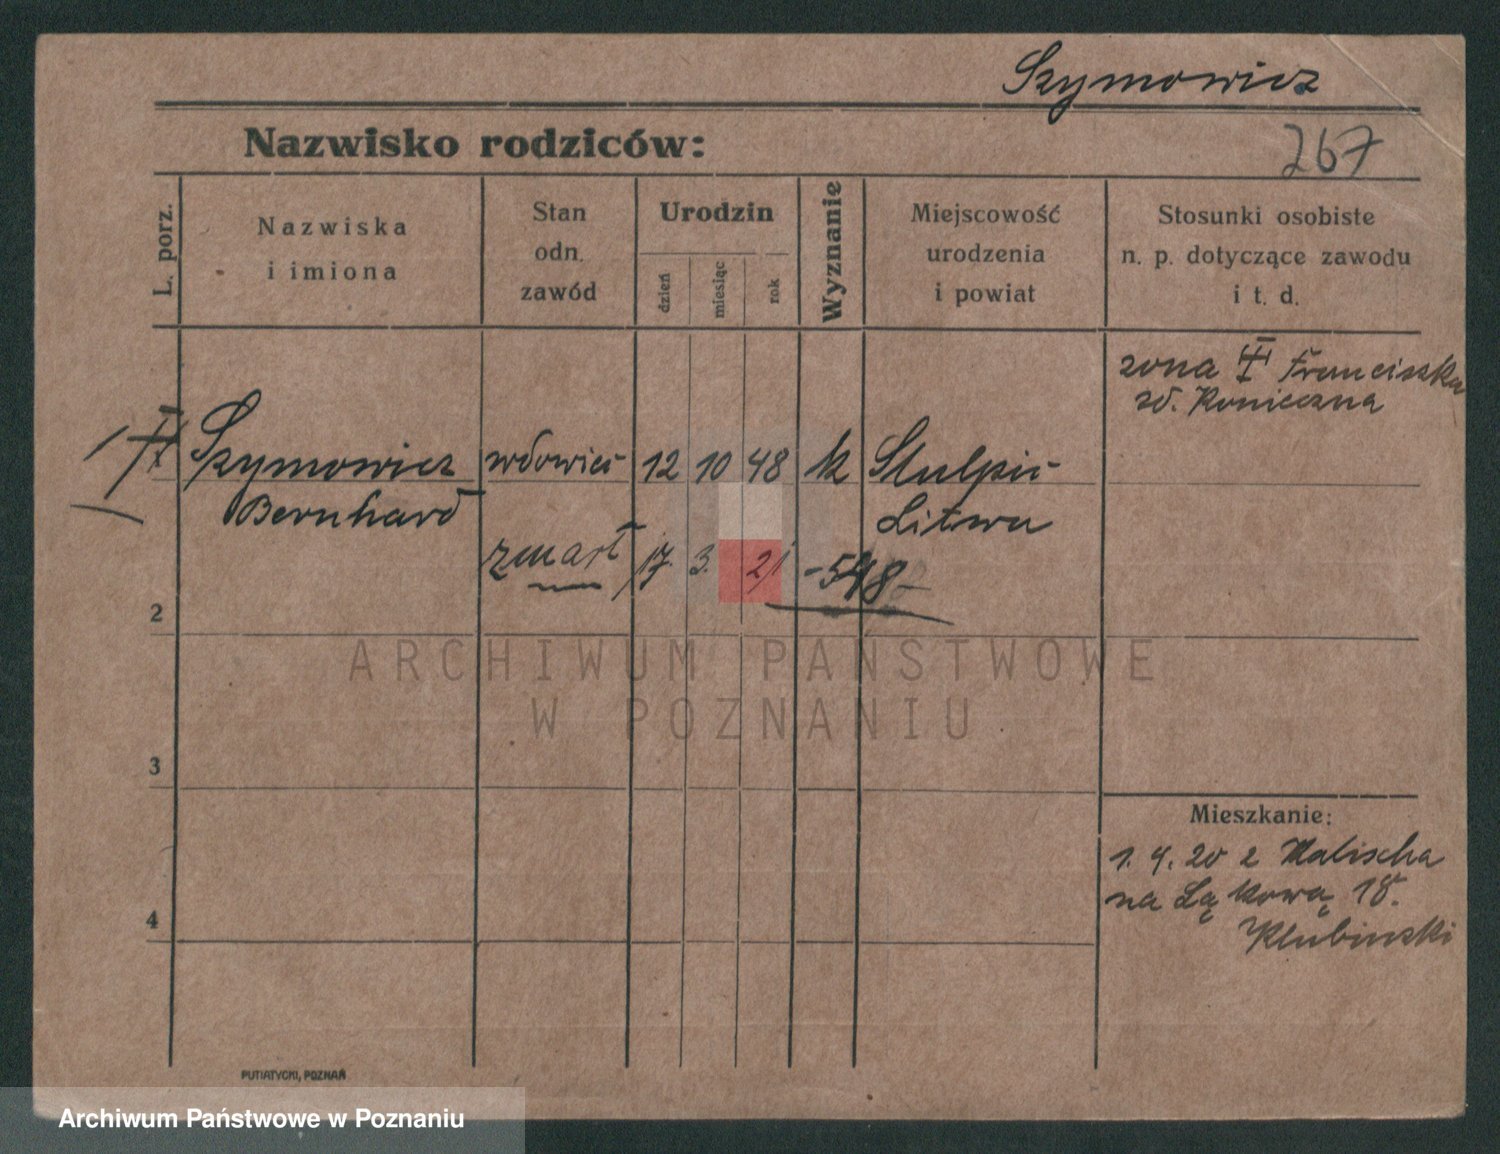 Szymowicz
Nazwisko rodziców:
267
L. porz.
Nazwiska
i imiona
Stan
odn.
zawód
Urodzin
dzień
miesiąc
rok
Wyznanie
Miejscowość
urodzenia
i powiat
Stosunki osobiste
n. p. dotyczące zawodu
i t. d.
żona Franciszka
zd. Konieczna
1
Szymowicz
Bernhard
wdowiec
12 10 48
k
Litwa
zmarł 17. 3. 21 -548-
2
ARCHIWUM PAŃSTWOWE
W POZNANIU
3
Mieszkanie:
1. 4. 20 z Malischa
na Łąkową 18.
Klubinski
4
PUTIATYCKI, POZNAŃ
Archiwum Państwowe w Poznaniu